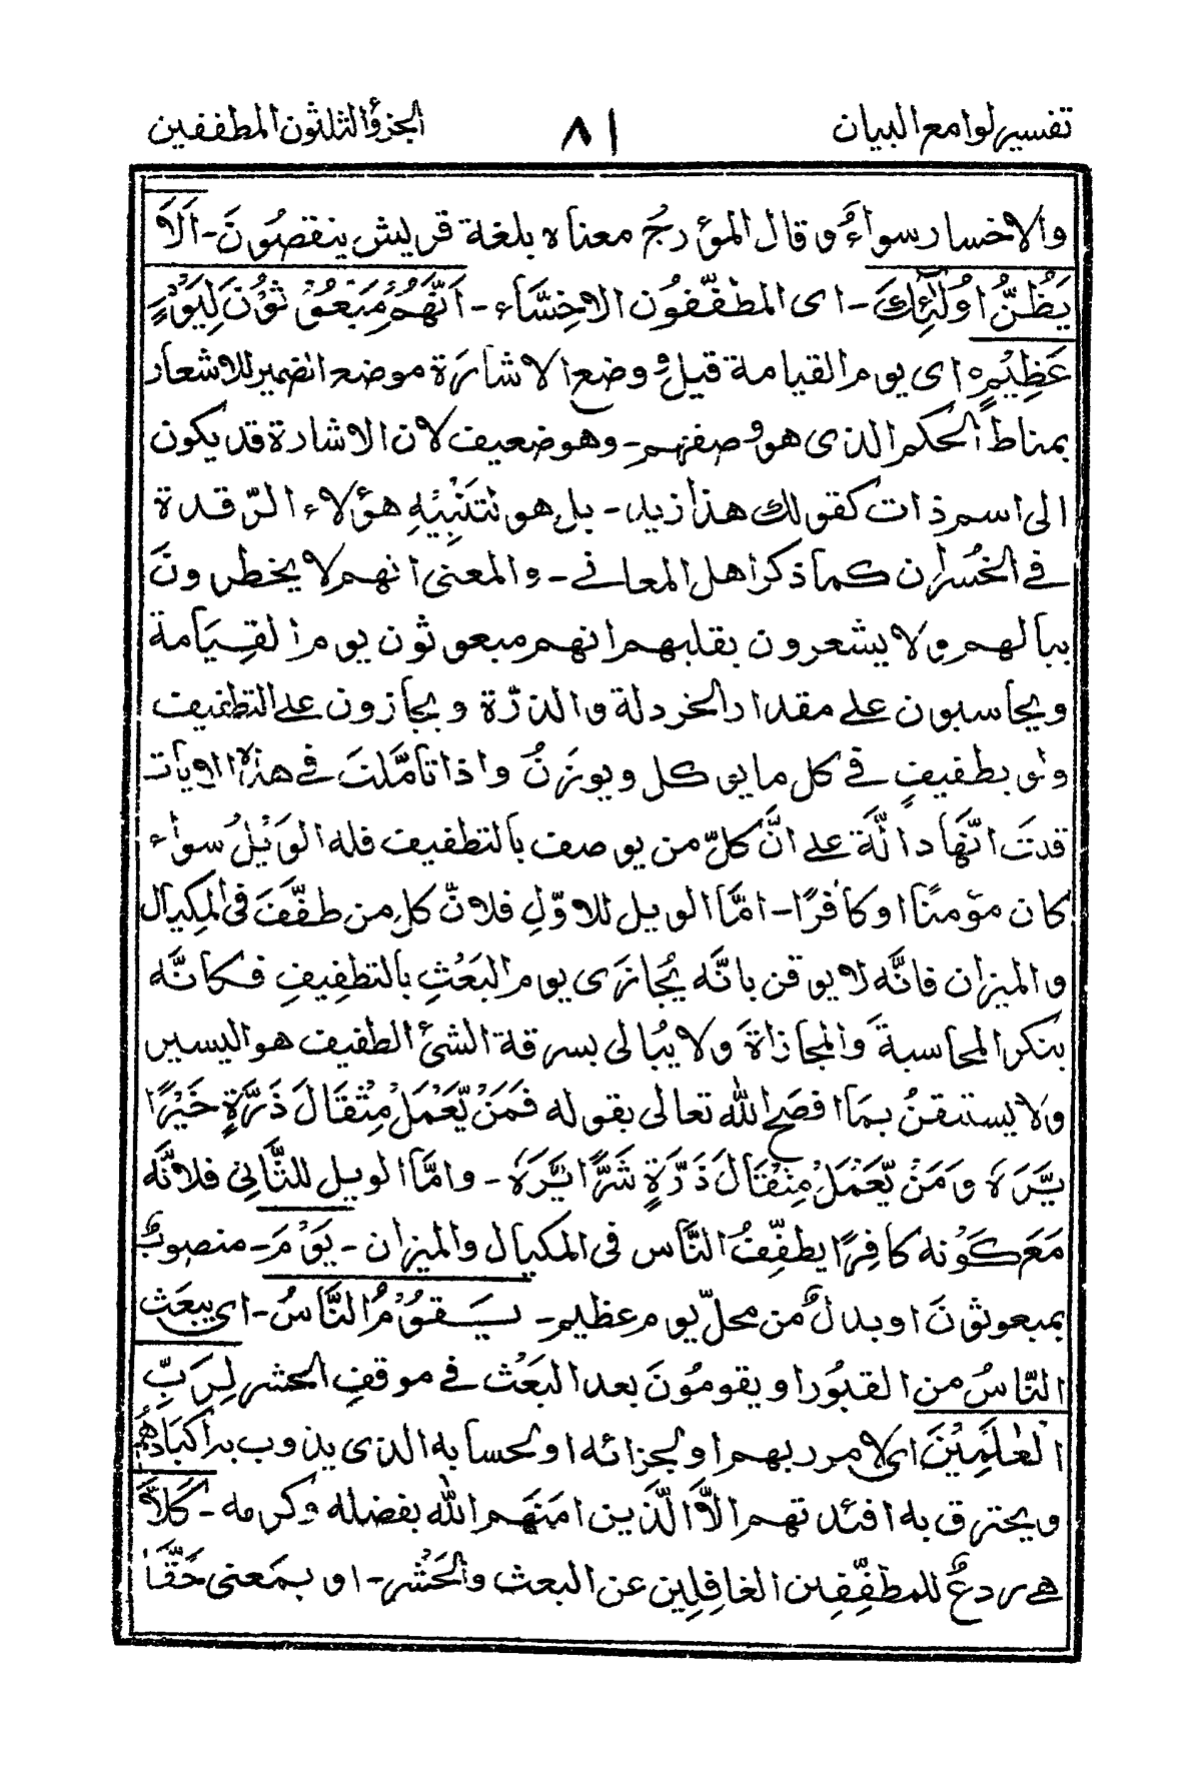 تفسير لوامع البيان
٨١
الجزؤ الثلثون المطففين
والاخسار سواءٌ وقال المؤرجُ معناه بلغة قريش ينقصُونَ - اَلَاَ
يَظُنُّ اُولٰٓئِكَ - اى المطفّفُون الاخِسَّاء - اَنَّهُمْ مَبْعُوْثُوْنَ لِيَوْمٍ
عَظِيْمٍ ه اى يوم القيامة قيل وفي وضع الاشارة موضع الضمير للاشعار
بمناط الحكم الذى هو وصفهم - وهو ضعيف لان الاشارة قد يكون
الى اسم ذات كقولك هذا زيد - بل هو لتَنْبِيْهِ هؤلاء الرّقدة
في الخُسران كما ذكر اهل المعاني - والمعنى انهم لا يخطرونَ
ببالهم ولا يشعرون بقلبهم انهم مبعوثون يوم القِيَامة
ويحاسبون على مقدار الخردلة والذرّة ويجازون على التطفيف
واى بطفيفٍ في كل ما يوكل ويوزنُ واذا تامَّلتَ في هذه الاٰيات
قدتَ انّهَا دالَّة على انَّ كلّ من يوصف بالتطفيف فله الوَيْلُ سواء
كان مؤمنًا او كافرًا - امَّا الويل للاوّلِ فلانّ كل من طفَّفَ فى المِكيال
والميزان فانَّه لا يوقن بانَّه يُجازى يوم البَعْثِ بالتطفِيفِ فكانَّه
ينكر المحاسبةَ والمجاذاةَ ولا يُبالى بسرقة الشئ الطفيف هو اليسير
ولا يستنقنُ بمَا افصَح الله تعالى بقوله فَمَنْ يَّعْمَلْ مِثْقَالَ ذَرَّةٍ خَيْرًا
يَّرَهٗ وَمَنْ يَّعْمَلْ مِثْقَالَ ذَرَّةٍ شَرًّا يَّرَهٗ - وامَّا الويل للثَّانِى فلانَّه
مَعَ كَوْنه كافِرًا يطفِّفُ النَّاس فى المكيال والميزان - يَوْمَ - منصوبٌ
بمبعوثونَ او بدلٌ من محلّ يوم عظيم - يَقُوْمُ النَّاسُ - اى يبعَث
النّاسُ من القبُور او يقومُونَ بعد البَعْث في موقفِ الحشر لِرَبِّ
الْعٰلَمِيْنَ اى لامر ربهم او لجزائه او لحسابه الذى يذوب به اكبَادهُم
ويحترق به افئدتهم الاَّ الَّذين امنَهم الله بفضله وكرمه - كَلاَّ
هى ردعٌ للمطفِّفين الغافِلِين عن البعث والحَشْر - او بمَعنى حَقًّا